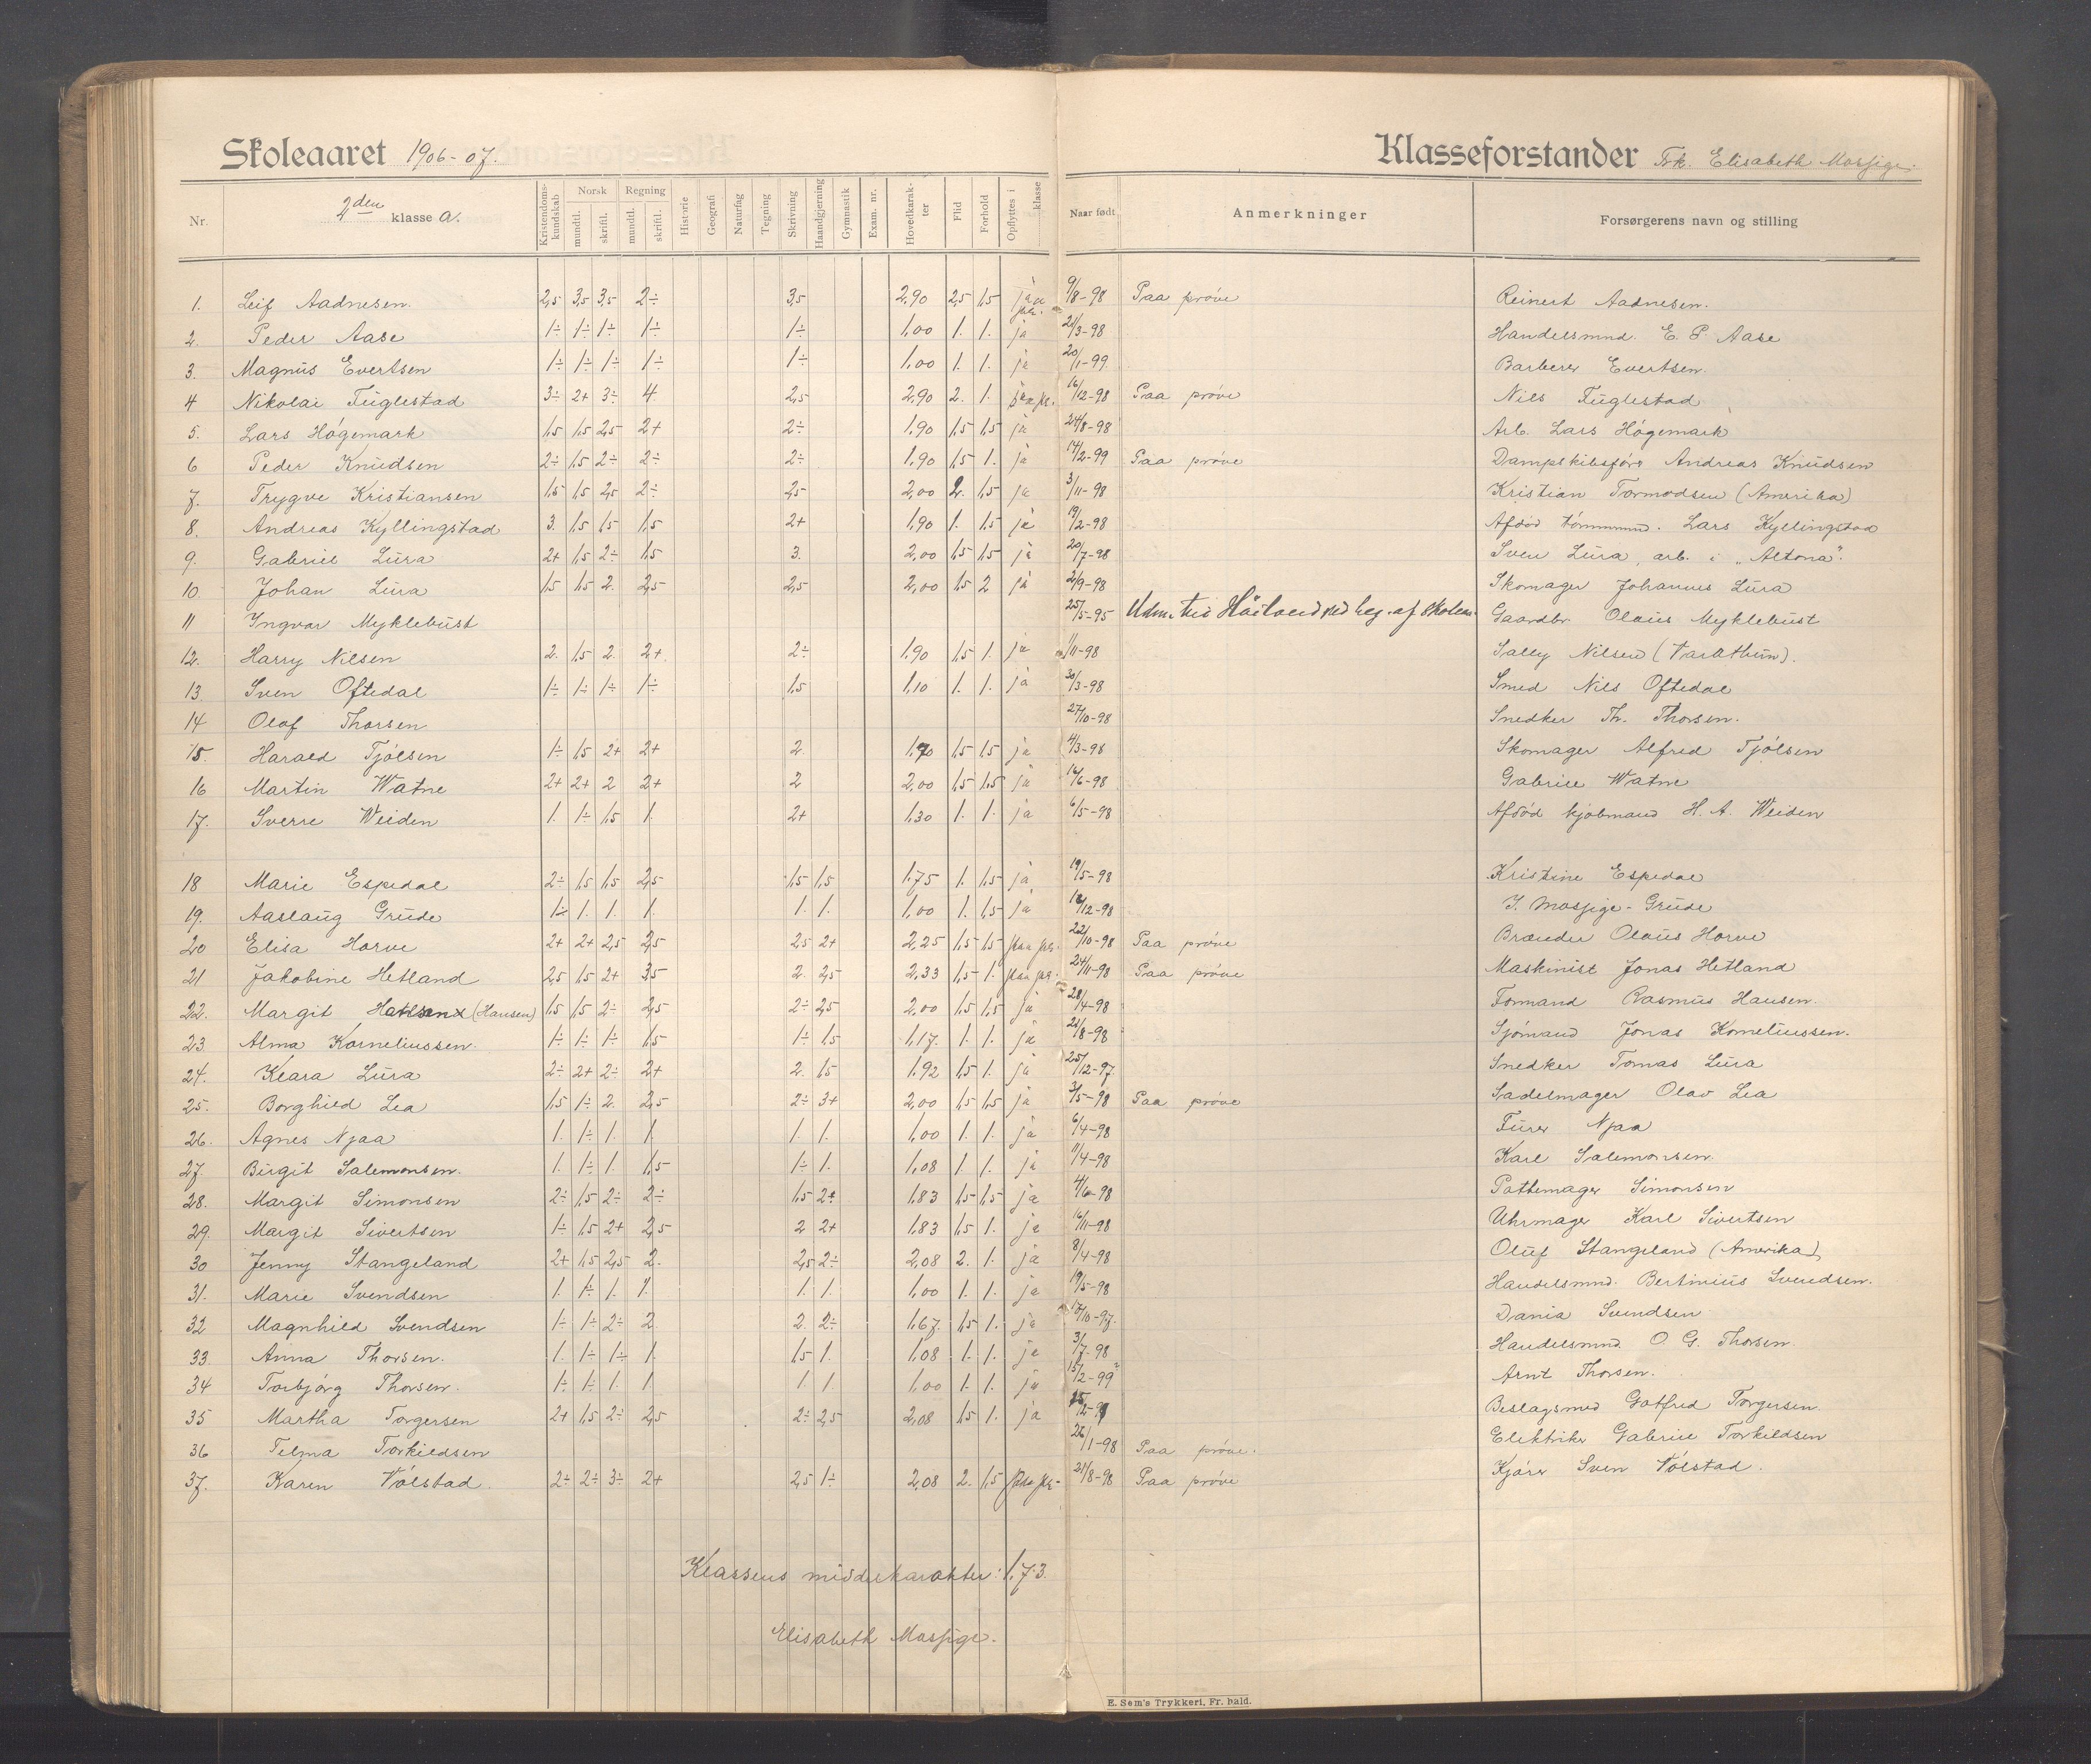 Skoleaaret 1906-07.
Klasseforstander Frk. Elisabeth Mossige.
Nr. 2den klasse a. Kristendomskundskab Norsk mundtl. skriftl. Regning mundtl. skriftl. Historie Geografi Naturfag Tegning Skrivning Haandgjerning Gymnastik Exam. nr. Hovedkarakter Flid Forhold Opflyttes i klasse Naar født Anmerkninger Forsørgerens navn og stilling
1. Leif Aadnesen. 2,5 3,5 3,5 2÷ 3,5 2,90 2,5 1,5 9/8-98 Paa prøve Reinert Aadnesen.
2. Peder Aase 1÷ 1÷ 1÷ 1÷ 1÷ 1,00 1. 1. ja 21/3-98 Handelsmnd. E. P. Aase
3. Magnus Evertsen 1÷ 1÷ 1÷ 1÷ 1÷ 1,00 1. 1. ja 20/1-99. Barberer Evertsen.
4 Nikolai Fuglestad 3÷ 2+ 3÷ 4 2,5 2,90 2. 1. 16/12-98 Paa prøve Nils Fuglestad
5. Lars Högemark 1,5 1,5 2,5 2+ 2÷ 1,90 1,5 1,5 ja 24/8-98 Arb. Lars Högemark
6 Peder Knudsen 2÷ 1,5 2÷ 2÷ 2÷ 1,90 1,5 1. ja 14/2-99 Paa prøve Dampskibsfører Andreas Knudsen
7. Trygve Kristiansen 1,5 1,5 2,5 2÷ 2,5 2,00 2. 1,5 ja 3/11-98 Kristian Tormodsen (Amerika)
8. Andreas Kyllingstad 3. 1,5 1,5 1,5 2+ 1,90 1. 1,5 ja 19/2-98 Afdød Lars Kyllingstad
9. Gabriel Lura 2+ 1,5 2÷ 1,5 3. 2,00 1,5 1,5 ja 20/7-98 Sven Lura, arb. i "Altona".
10. Johan Lura 1,5 1,5 2. 2,5 2,5 2,00 1,5 2 ja 2/9-98 Skomager Johannes Lura
11 Ingvar Myklebust 25/5-95 Udm. til Høiland ved beg. af skolen. Gaardbr. Olaus Myklebust
12. Harry Nilsen 2. 1,5 2. 2+. 2÷ 1,90 1,5 1. ja 1/11-98 Sally Nilsen (Varathun).
13. Sven Oftedal 1÷ 1÷ 1÷ 1÷ 1,5 1,10 1. 1. ja 30/3-98 Smed Nils Oftedal
14 Olaf Thorsen 27/10-98 Snedker Th. Thorsen.
15. Harald Tjölsen 1÷ 1,5 2+ 2+ 2. 1,70 1,5 1,5 ja 4/3-98 Skomager Alfred Tjölsen
16 Martin Watne 2+ 2+ 2 2+ 2 2,00 1,5 1,5 ja 16/6-98 Gabriel Watne
17. Sverre Weiden 1. 1÷ 1,5 1. 2+ 1,30 1. 1. ja 6/5-98 Afdød kjøbmand H. A. Weiden
18 Marie Espedal 2÷ 1,5 1,5 2,5 1,5 1,5 1,75 1. 1,5 ja 19/5-98 Kristine Espedal
19. Aaslaug Grude 1÷ 1. 1. 1. 1. 1. 1,00 1. 1,5 ja 18/12-98 J. Mossige-Grude
20 Elisa Horve 2+ 2+ 2,5 2,5 2,5 2+ 2,25 1,5 1,5 paa prø. 22/10-98 Paa prøve Brænder Olaus Horve
21 Jakobine Hetland 2,5 1,5 2+ 3,5 2. 2,5 2,33 1,5 1. paa prø. 24/11-98 Paa prøve Maskinist Jonas Hetland
22. Margit (Hansen) 1,5 1,5 2÷ 2,5 2÷ 2,5 2,00 1,5 1,5 ja 28/4-98 Formand Rasmus Hansen.
23 Alma Korneliussen. 1÷ 1÷ 1÷ 1,5 1÷ 1,5 1,17. 1. 1. ja 21/8-98 Sjömand Jonas Korneliussen.
24. Klara Lura 2÷ 2+ 2÷ 2+ 2. 1,5 1,92 1,5 1. ja 25/12-97. Snedker Tomas Lura
25. Borghild Lea 1,5 1÷ 2. 2,5 2÷ 3+ 2,00 1,5 1,5 ja 3/5-98 Paa prøve Sadelmager Olav Lea
26. Agnes Njaa 1. 1÷ 1. 1. 1. 1. 1,00 1. 1. ja 6/4-98 Furer Njaa
27 Birgit Salemonsen. 1. 1÷ 1. 1,5 1÷ 1. 1,08 1. 1. ja 11/4-98 Karl Salemonsen.
28. Margit Simonsen 2÷ 1,5 2÷ 2÷ 1,5 2+ 1,83 1,5 1,5 ja 4/6-98 Pottemager Simonsen
29. Margit Sivertsen 1÷ 1,5 2+ 2,5 2 2+ 1,83 1,5 1. ja 16/11-98 Uhrmager Karl Sivertsen
30 Jenny Stangeland 2+ 1,5 2,5 2. 2,5 2÷ 2,08 2. 1. ja 8/4-98 Oluf Stangeland (Amerika)
31. Marie Svendsen 1. 1÷ 1. 1. 1. 1. 1,00 1. 1. ja 19/5-98 Handelsmnd. Bertinius Svendsen.
32 Magnhild Svendsen 1÷ 1÷ 2÷ 2 2. 2÷ 1,67. 1,5 1. ja 18/10-97. Dania Svendsen
33. Anna Thorsen. 1. 1÷ 1÷ 1. 1,5 1. 1,08 1. 1. ja 3/7-98 Handelsmnd. O. G. Thorsen.
34 Torbjörg Thorsen. 1÷ 1÷ 1. 1 1 1. 1,00 1. 1. ja 15/2-99? Arnt Thorsen.
35 Martha Torgersen 2+ 1,5 2÷ 2,5 2÷ 2,5 2,08 1,5 1. ja Beslagsmed Gotfred Torgersen
36 Telma Torkildsen 26/1-98 Paa prøve. Elektriker Gabriel Torkildsen
37. Karen Völstad. 2÷ 2÷ 3÷ 2+ 2,5 1÷ 2,08 2. 1,5 paa prø. 21/8-98 Paa prøve Kjører Sven Völstad.
Klassens middelkarakter: 1,73.
Elisabeth Mossige.
E. Sem's Trykkeri, Fr. hald.